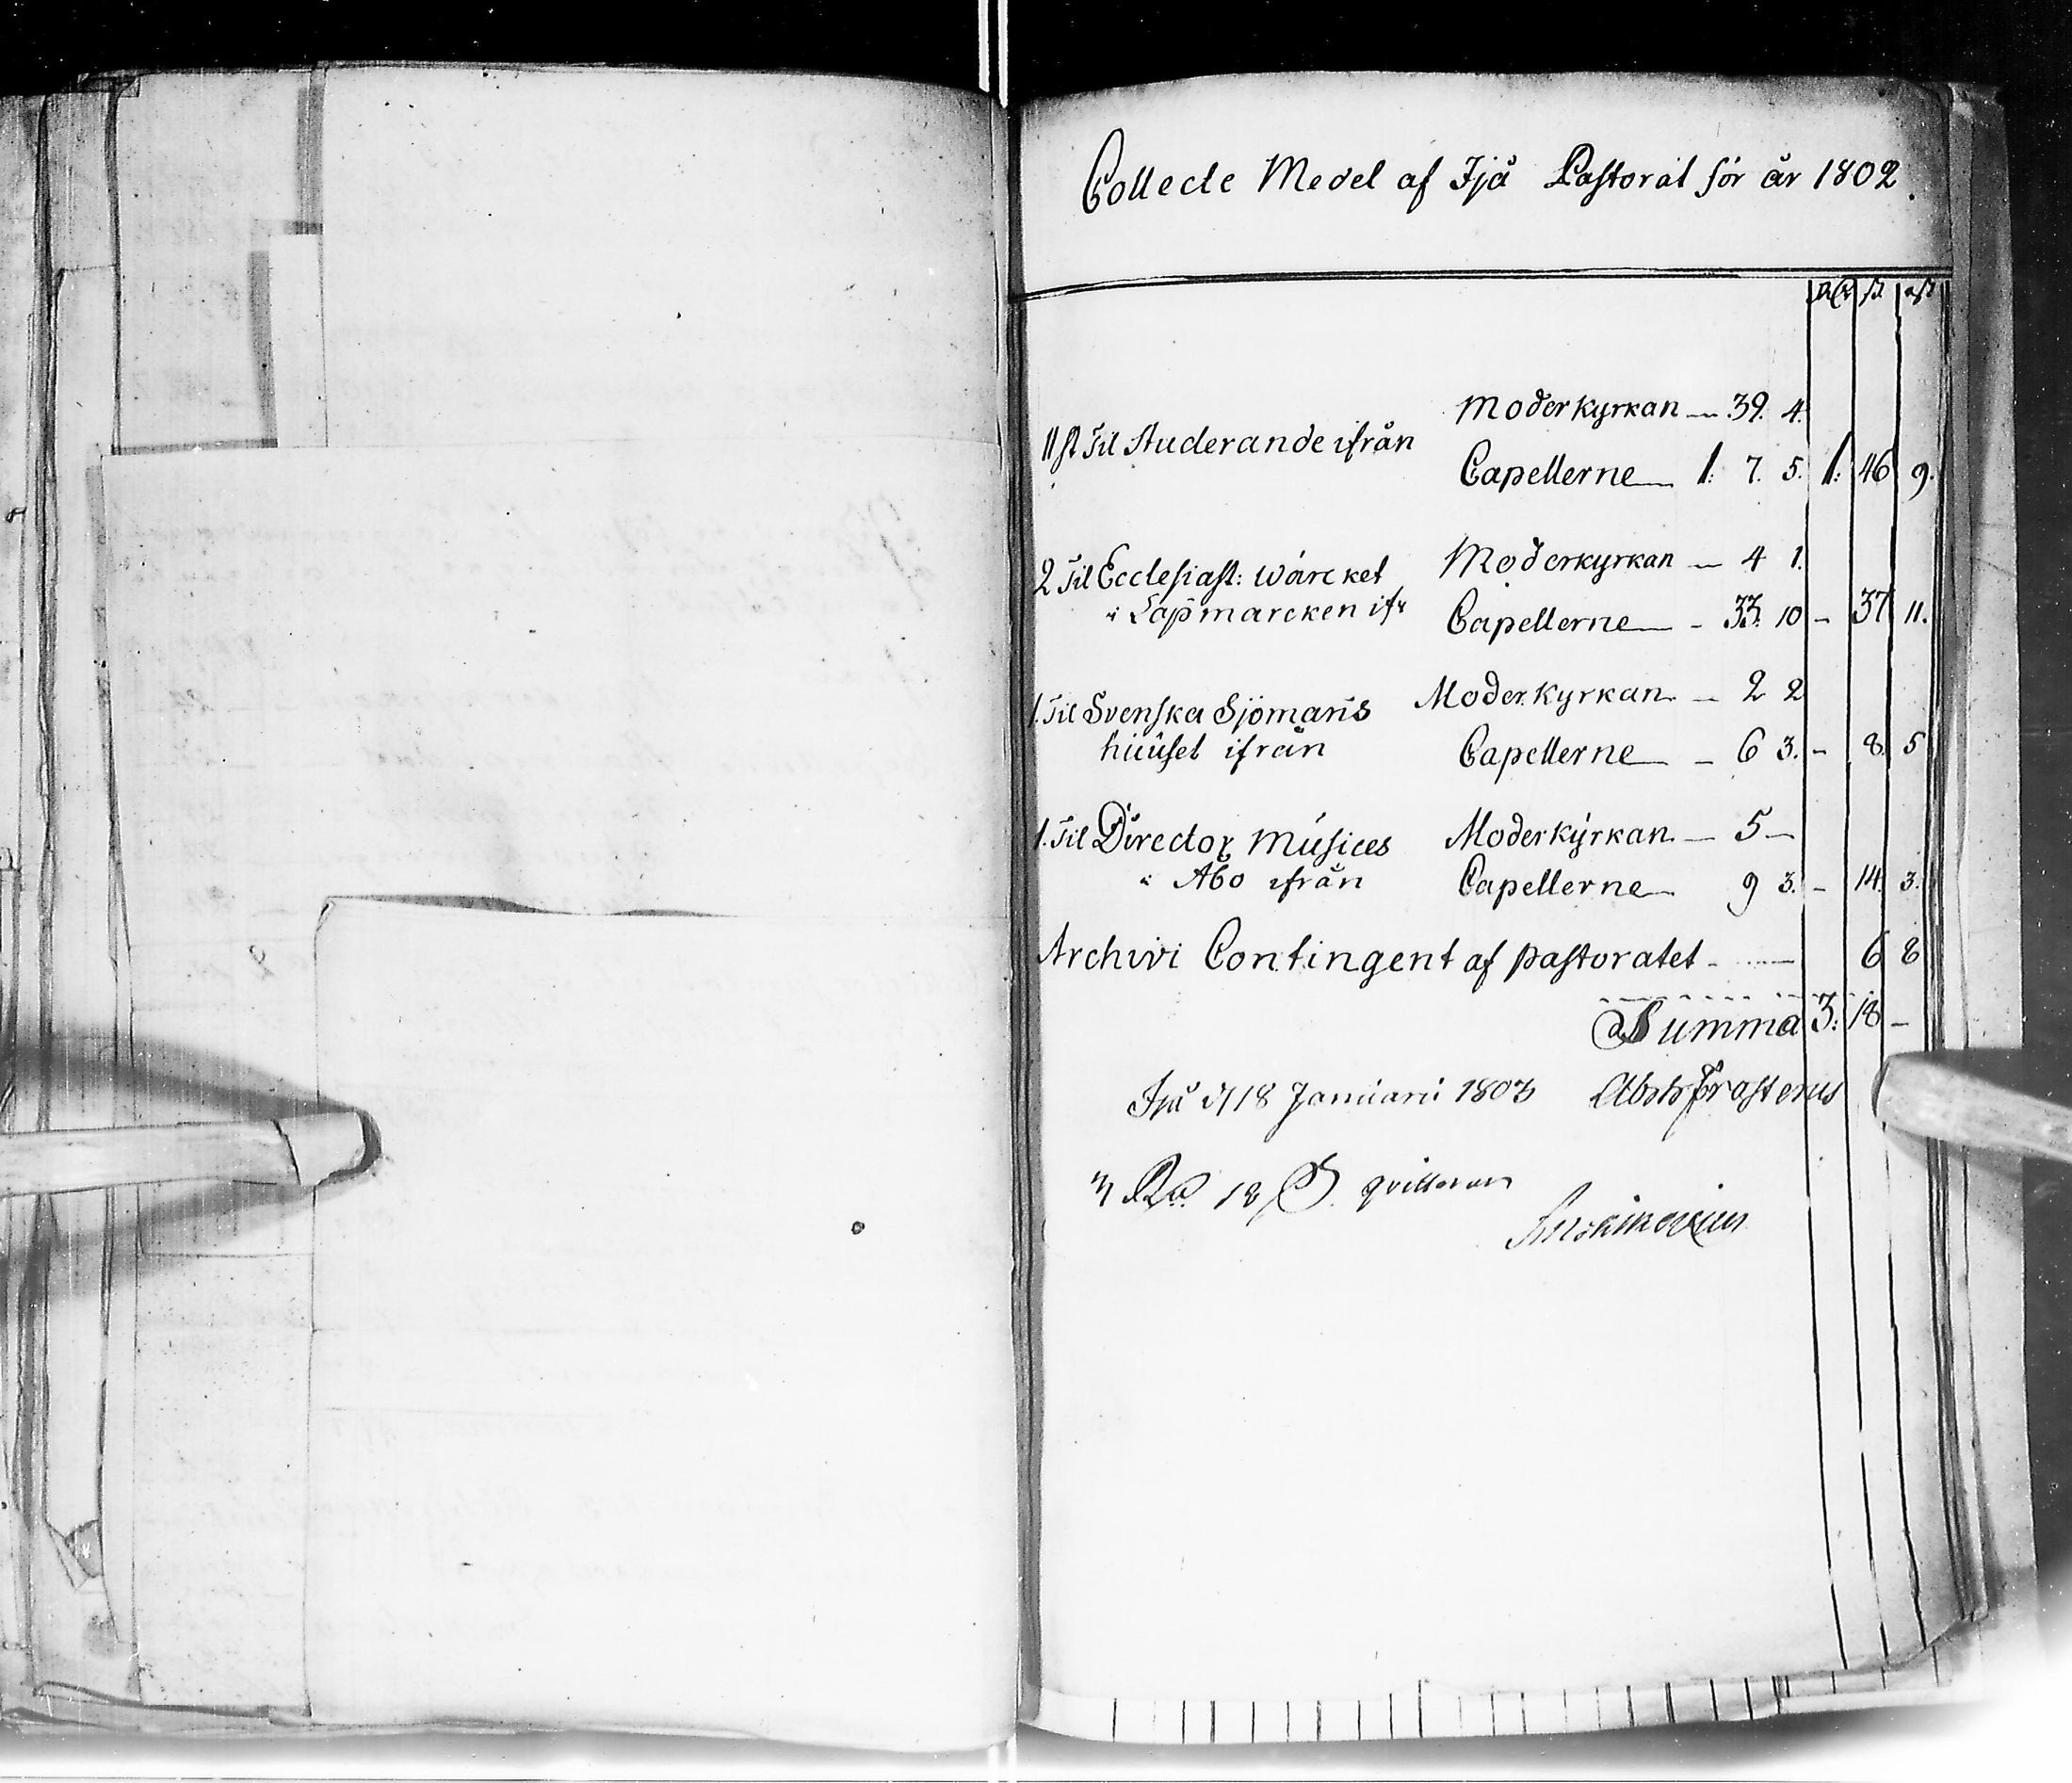 Collecte Medel af Ijå Pastorat för år 1802.
Rd sk rst
Moderkyrkan — 39. 4.
11 st Til Studerande ifrån
Capellerne — 1: 7. 5. 1: 46 9.
2 Til Ecclesiast: wärcket Moderkyrkan — 4 1.
i Lapmarcken ifr Capellerne — - 33. 10 - 37 11.
1. Til Svenska Sjömans Moderkyrkan — 2 2
huuset ifrån Capellerne — - 6 3. - 8. 5
1. Til Director Musices Moderkyrkan — 5 —
i Åbo ifrån Capellerne — 9 3. - 14. 3.
Archivi Contingent af pastoratet - — 6 8
Summa 3: 18 —
Ijå d 18 Januarii 1803
3 Rd. 18 S. qvitteras